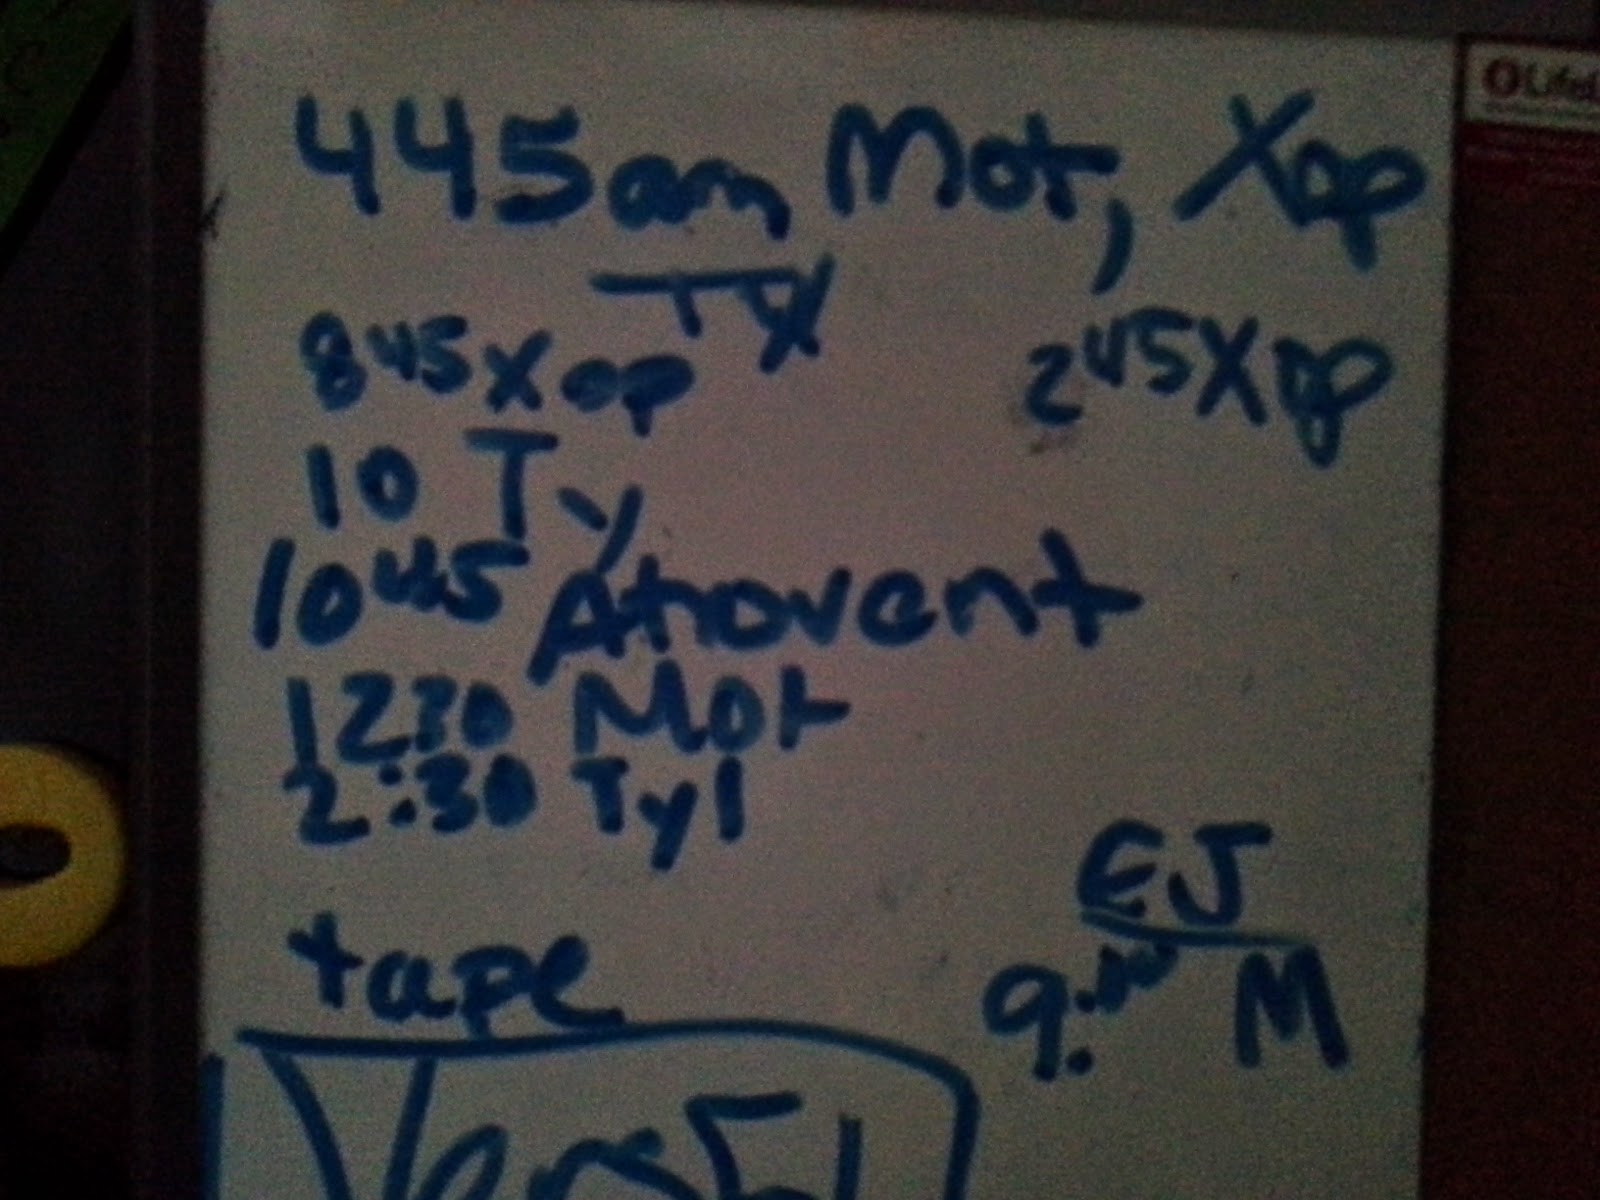 445am Mot, Xop
TX
845 Xop
245 Xop
10 Ty
1045 Atrovent
1230 Mot
2:30 Tyl
EJ
9:00 M
tape